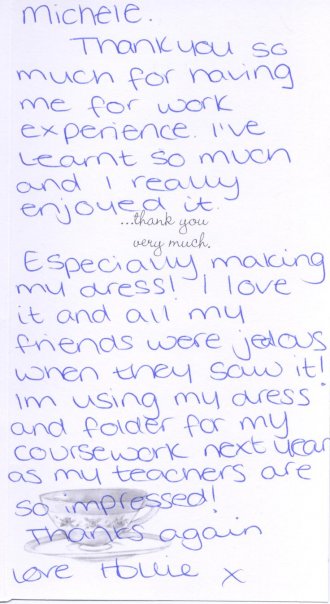 Michele.
Thankyou so
much for having
me for work
experience. I've
learnt so much
and I really
enjoyed it.
...thank you
very much.
Especially making
my dress! I love
it and all my
friends were jealous
when they saw it!
Im using my dress
and folder for my
coursework next year
as my teachers are
so impressed!
Thanks again
love Hollie x